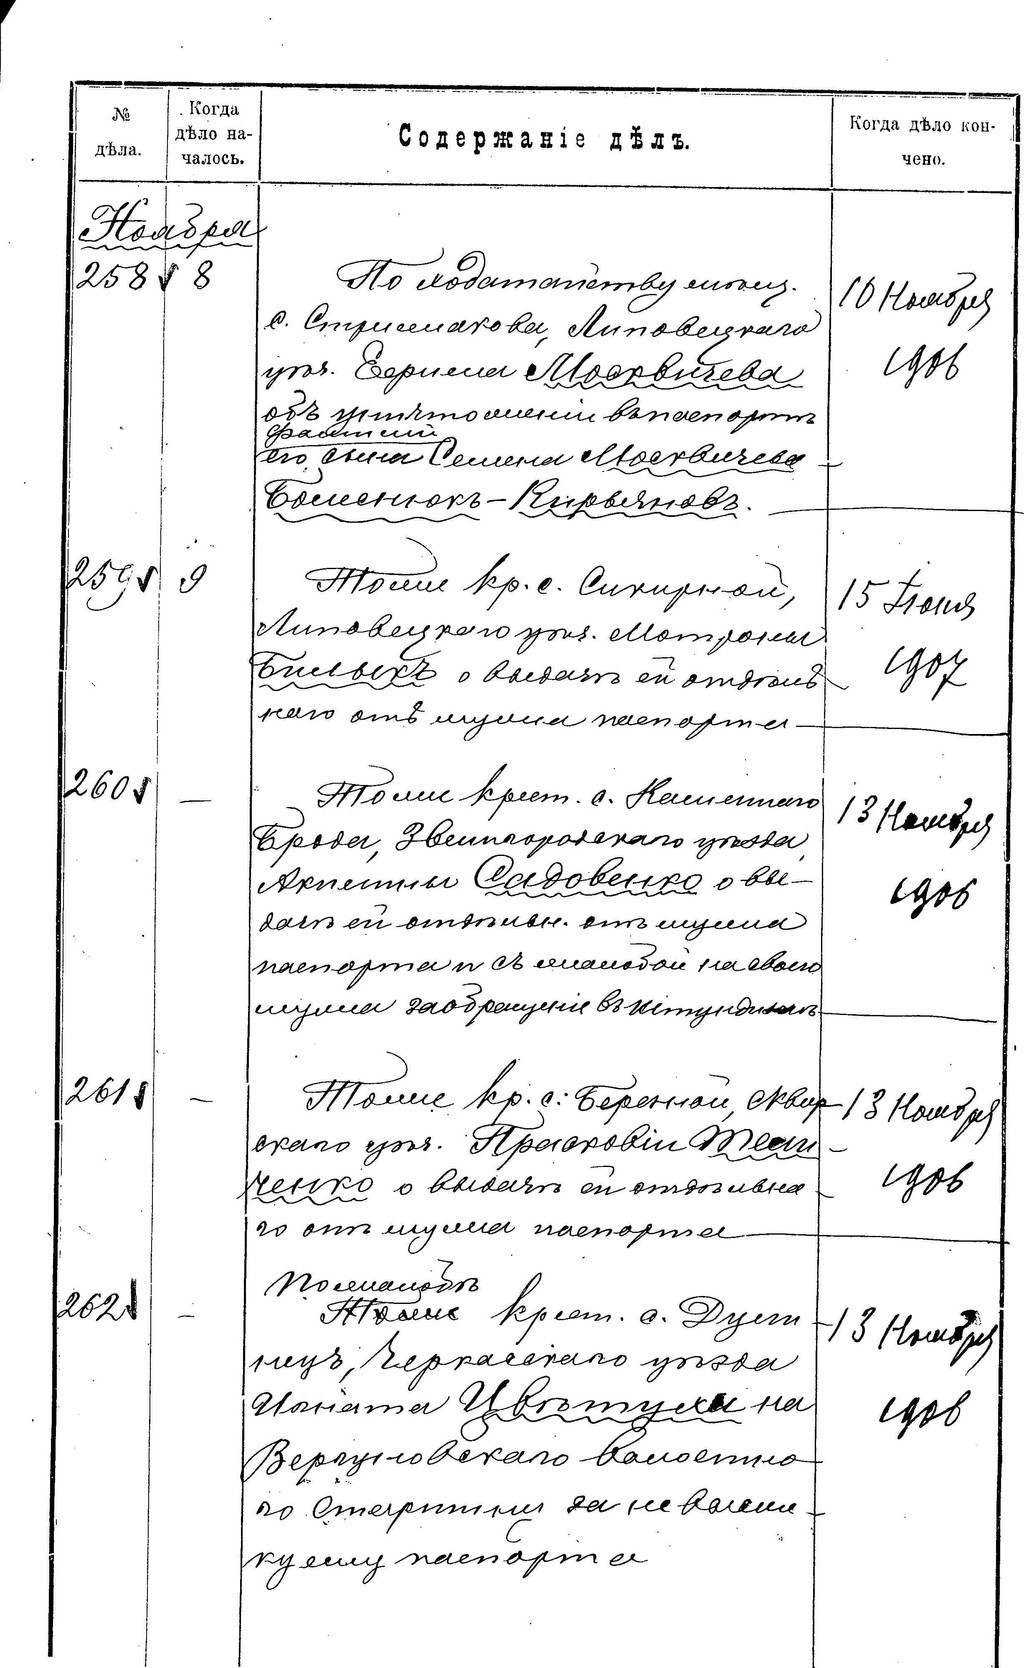 № дѣла.
Когда дѣло началось.
Содержаніе дѣлъ.
Когда дѣло кончено.
Ноября
258 8
По ходатайству мѣщ.
с. Стрижакова, Липовецкаго
уѣз. Москвичева
объ уничтоженіи въ паспортѣ
фамилій
его сына Семена Москвичева
Боженокъ-Кирьяновъ.
10 Ноября
1906
259 9
Тоже кр. с. Сихирной,
Липовецкаго уѣз. Мотроны
Билыкъ о выдачѣ ей отдѣль
наго отъ мужа паспорта
15 Іюня
1907
260 —
Тоже крест. с. Каменнаго
Брода, Звенигородскаго уѣзда
Акпеины Садовенко о вы-
дачѣ ей отдѣльн. отъ мужа
паспорта и съ жалобой на своего
мужа за обращеніе въ штундизмъ
13 Ноября
1906
261 —
Тоже кр. с. Бережной, Сквир
скаго уѣз. Прасковіи
ченко о выдачѣ ей отдѣльна
го отъ мужа паспорта
13 Ноября
1906
262 —
По жалобѣ
Тоже крест. с. Дуби
нец, Черкасскаго уѣзда
Игната Цвѣтуха на
Вергуновскаго волостно
го Старшину за невыси
ку ему паспорта
13 Ноября
1906